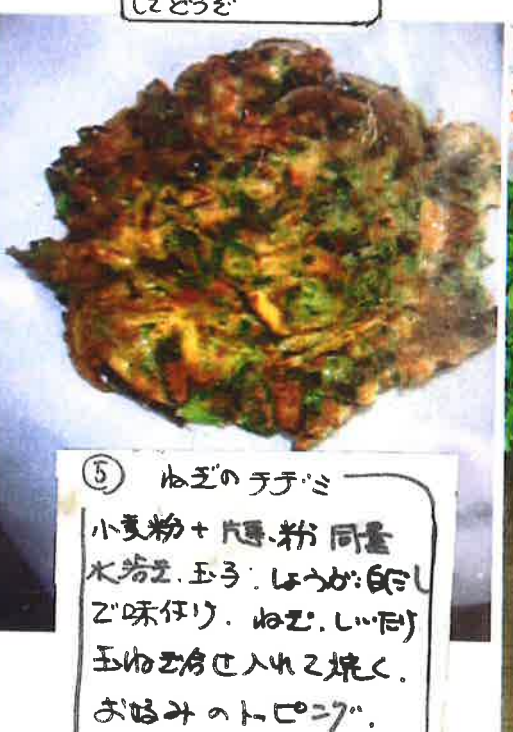 してどうぞ
⑤ ねぎのチヂミ
小麦粉+片栗粉 同量
水若干、玉子、しょうが、白だし
で味付け、ねぎ、しいたけ
玉ねぎ合せ入れて焼く、
お好みのトッピング、